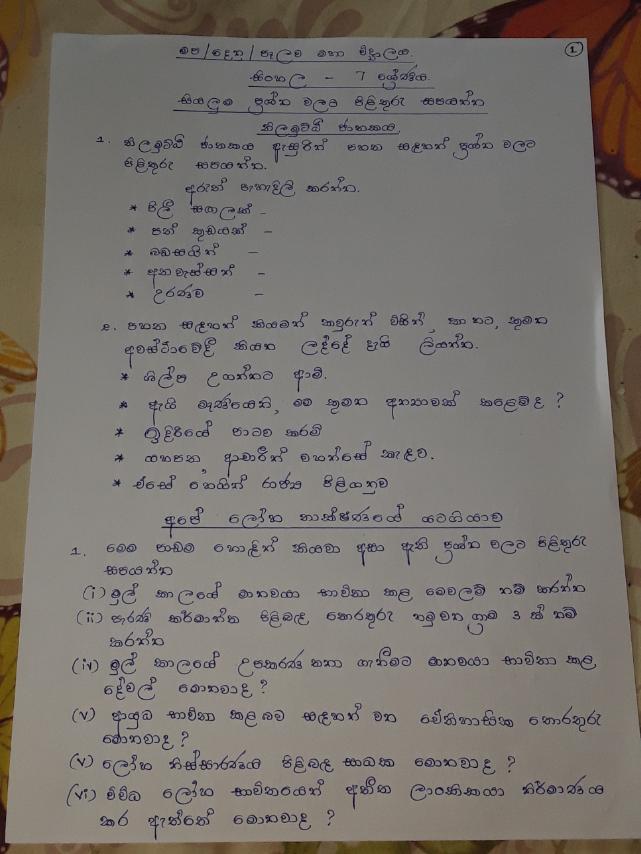 1
මප/දෙහි/පැලව මහා විද්‍යාලය.
සිංහල - 7 ශ්‍රේණිය.
සියලුම ප්‍රශ්න වලට පිළිතුරු සපයන්න
තිලමුට්ඨි ජාතකය
1. තිලමුට්ඨි ජාතකය ඇසුරින් පහත සඳහන් ප්‍රශ්න වලට
පිළිතුරු සපයන්න.
අරුත් පැහැදිලි කරන්න.
* පිලී සඟලක් -
* පත් කුඩයක් -
* බඩසයින් -
* අතවැස්සන් -
* උරණව -
2. පහත සඳහන් කියමන් කවුරුන් විසින්, කා හට, කුමන
අවස්ථාවේදී කියන ලද්දේ දැයි ලියන්න.
* ශිල්ප උගන්නට ආමි.
* ඇයි මෑණියෙනි, මම කුමන අන්‍යාවක් කළෙම්ද ?
* ඉදිරියේ පාටව කරමි
* යහපත, ආචාරීන් වහන්සේ කැඳව.
* එසේ හෙයින් රාජ්‍ය පිළිගනුව
අපේ ලෝහ තාක්ෂණයේ යටගියාව
1. මෙම පාඩම හොඳින් කියවා අසා ඇති ප්‍රශ්න වලට පිළිතුරු
සපයන්න
(i) මුල් කාලයේ මානවයා භාවිතා කළ මෙවලම් නම් කරන්න
(ii) පැරණි කර්මාන්ත පිළිබඳ තොරතුරු හමුවන ග්‍රාම 3 ක් නම්
කරන්න
(iv) මුල් කාලයේ උපකරණ තනා ගැනීමට මානවයා භාවිතා කළ
දේවල් මොනවාද ?
(v) ආයුධ භාවිතා කළ බව සඳහන් වන ඓතිහාසික තොරතුරු
මොනවාද ?
(v) ලෝහ නිස්සාරණය පිළිබඳ සාධක මොනවාද ?
(vi) විවිධ ලෝහ භාවිතයෙන් අතීත ලාංකිකයා නිර්මාණය
කර ඇත්තේ මොනවාද ?